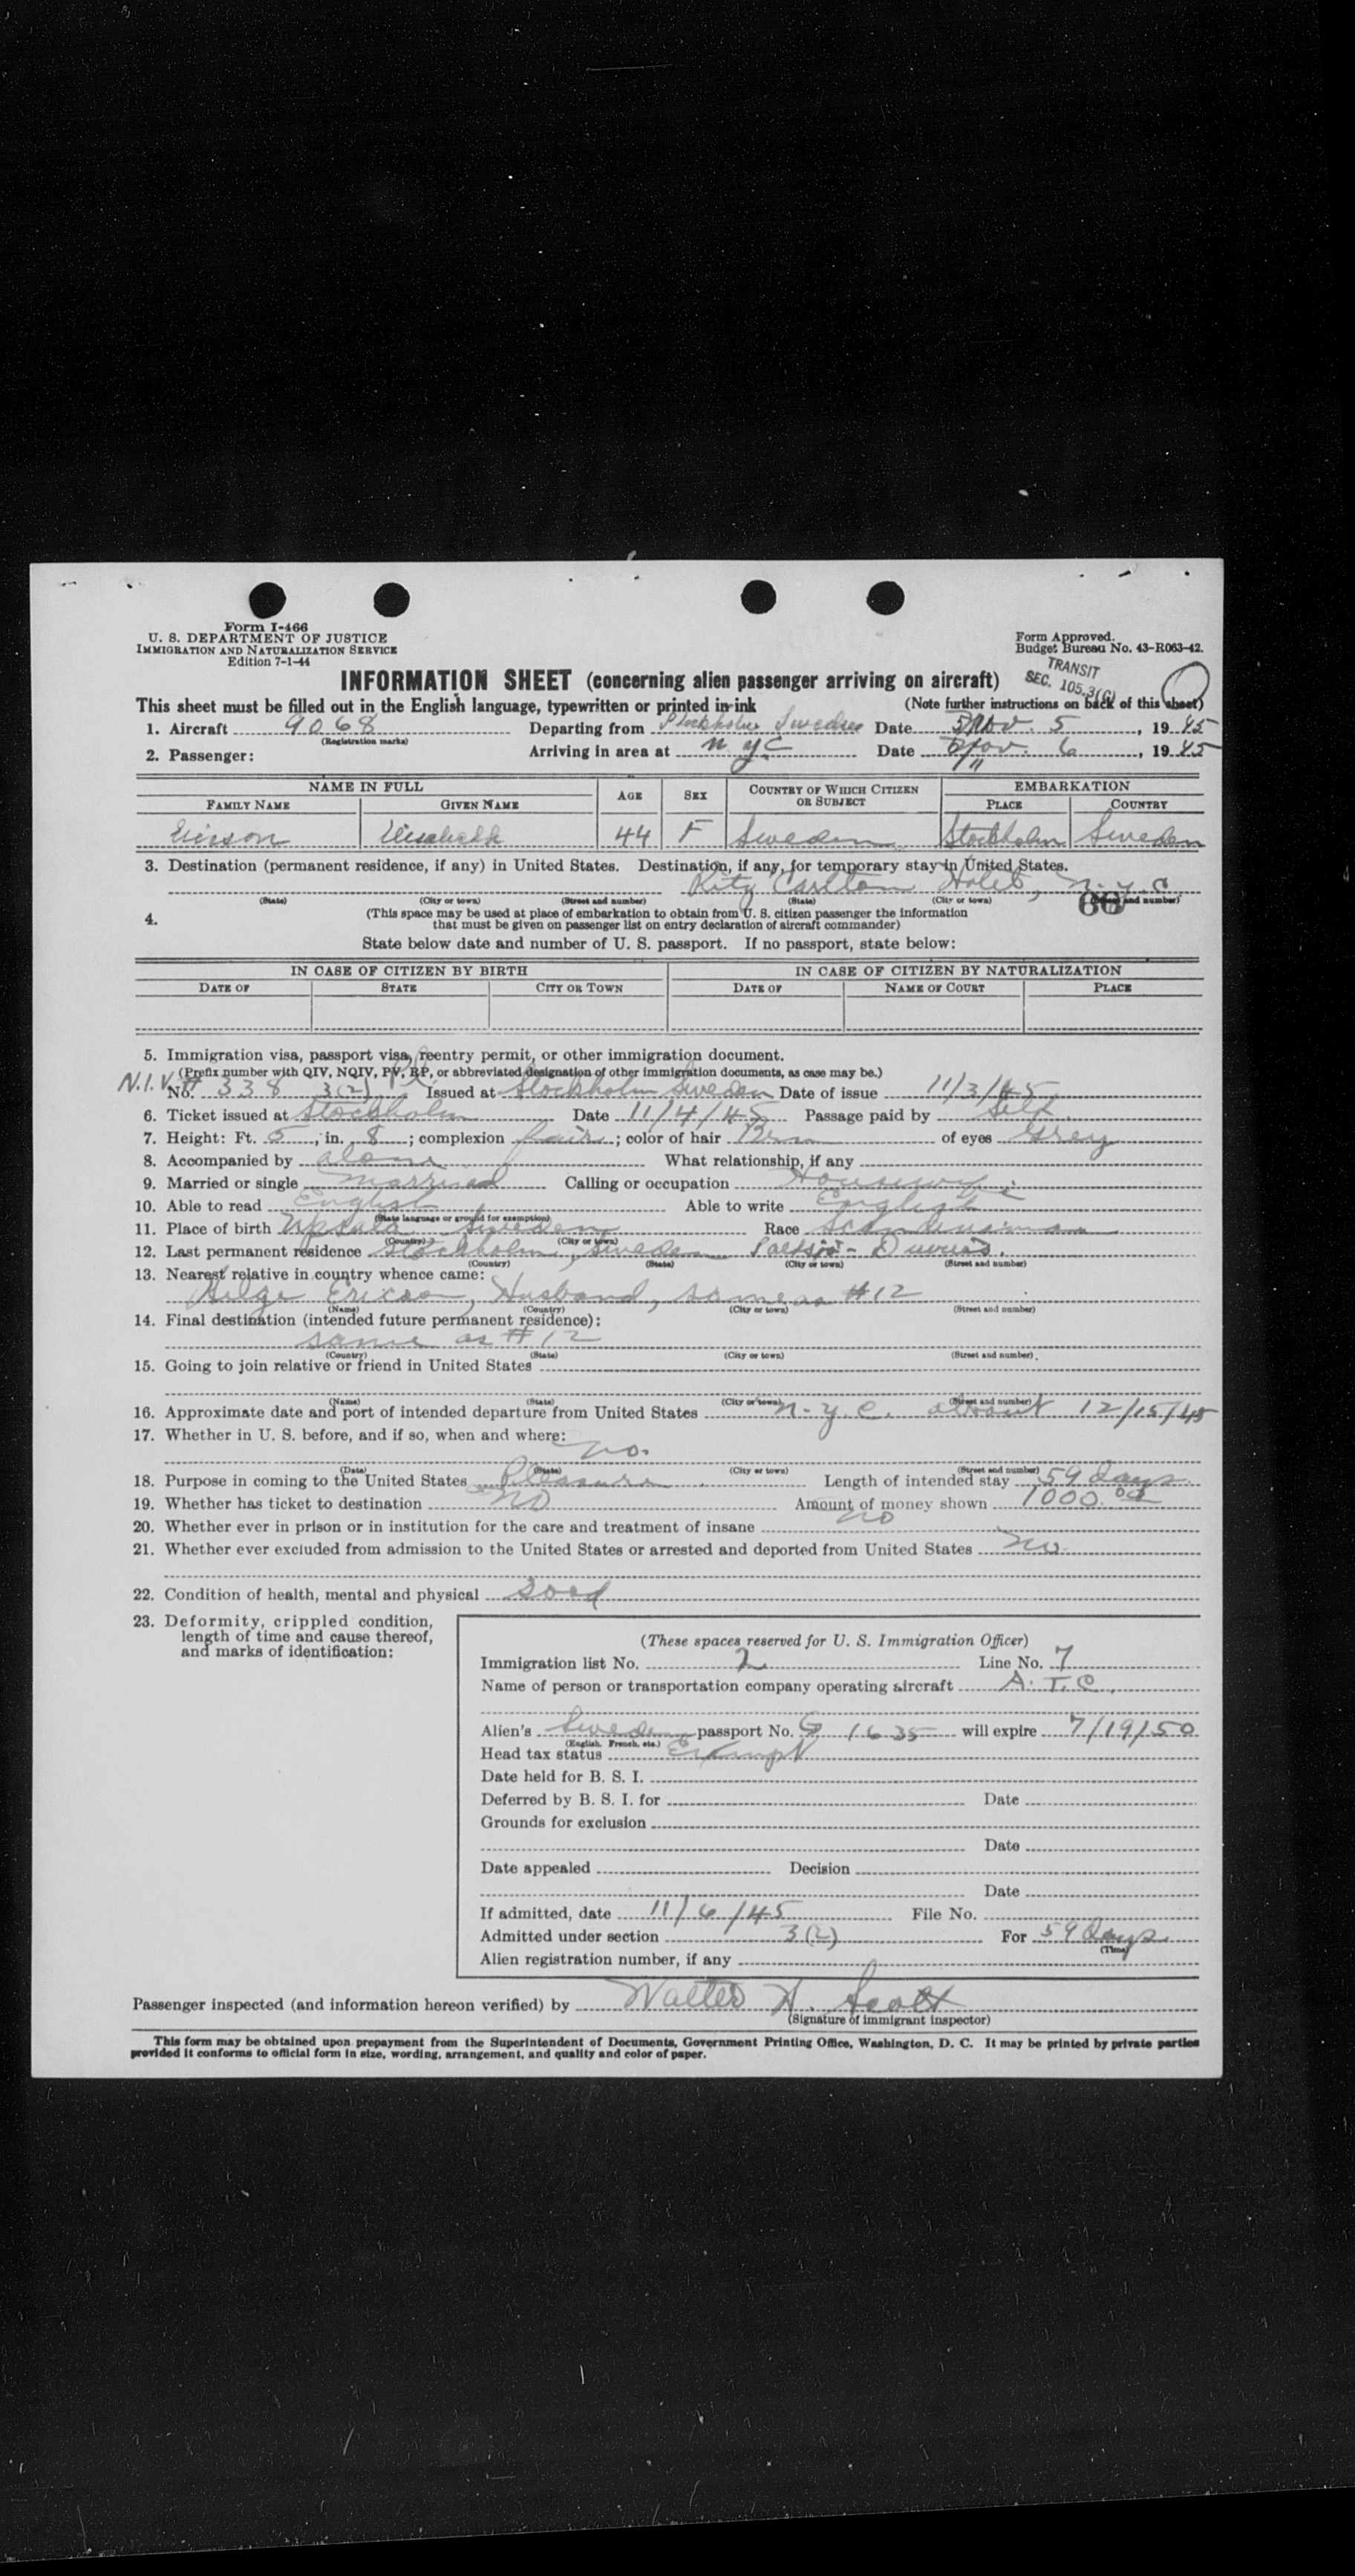 Form I-466
U. S. DEPARTMENT OF JUSTICE
IMMIGRATION AND NATURALIZATION SERVICE
Edition 7-1-44
Form Approved.
Budget Bureau No. 43-R063-42.
TRANSIT
SEC. 105.3(C)
INFORMATION SHEET (concerning alien passenger arriving on aircraft)
This sheet must be filled out in the English language, typewritten or printed in ink (Note further instructions on back of this sheet)
1. Aircraft 9068 Departing from Stockholm Sweden Date Nov. 5, 1945
(Registration marks)
2. Passenger: Arriving in area at N.Y.C Date Nov. 6, 1945
NAME IN FULL AGE SEX COUNTRY OF WHICH CITIZEN OR SUBJECT EMBARKATION
FAMILY NAME GIVEN NAME PLACE COUNTRY
44 F Sweden Stockholm Sweden
3. Destination (permanent residence, if any) in United States. Destination, if any, for temporary stay in United States.
Ritz Carlton Hotel, N.Y.C.
(State) (City or town) (Street and number) (State) (City or town) (Street and number)
66
4. (This space may be used at place of embarkation to obtain from U. S. citizen passenger the information
that must be given on passenger list on entry declaration of aircraft commander)
State below date and number of U. S. passport. If no passport, state below:
IN CASE OF CITIZEN BY BIRTH IN CASE OF CITIZEN BY NATURALIZATION
DATE OF STATE CITY OR TOWN DATE OF NAME OF COURT PLACE
5. Immigration visa, passport visa, reentry permit, or other immigration document.
(Prefix number with QIV, NQIV, PV, RP, or abbreviated designation of other immigration documents, as case may be.)
N.I.V. # No. 338 3(2) Issued at Stockholm Sweden Date of issue 11/3/45
6. Ticket issued at Stockholm Date 11/4/45 Passage paid by Self
7. Height: Ft. 5, in. 8; complexion fair; color of hair Brn of eyes Grey
8. Accompanied by alone What relationship, if any
9. Married or single married Calling or occupation Housewife
10. Able to read English Able to write English
(State language or ground for exemption)
11. Place of birth Upsala Sweden Race Scandinavian
(Country) (City or town)
12. Last permanent residence Stockholm, Sweden
(Country) (State) (City or town) (Street and number)
13. Nearest relative in country whence came:
Helge Ericson, Husband, same as #12
(Name) (Country) (City or town) (Street and number)
14. Final destination (intended future permanent residence):
same as #12
(Country) (State) (City or town) (Street and number)
15. Going to join relative or friend in United States
(Name) (State) (City or town) (Street and number)
16. Approximate date and port of intended departure from United States N.Y.C. about 12/15/45
17. Whether in U. S. before, and if so, when and where:
no.
(Date) (State) (City or town) (Street and number)
18. Purpose in coming to the United States Pleasure Length of intended stay 59 days
19. Whether has ticket to destination no Amount of money shown 1000.00
20. Whether ever in prison or in institution for the care and treatment of insane no
21. Whether ever excluded from admission to the United States or arrested and deported from United States no
22. Condition of health, mental and physical good
23. Deformity, crippled condition,
length of time and cause thereof,
and marks of identification:
(These spaces reserved for U. S. Immigration Officer)
Immigration list No. 2 Line No. 7
Name of person or transportation company operating aircraft A.T.C.
Alien's Sweden passport No. G 1635 will expire 7/19/50
(English, French, etc.)
Head tax status Exempt
Date held for B. S. I.
Deferred by B. S. I. for Date
Grounds for exclusion
Date
Date appealed Decision
Date
If admitted, date 11/6/45 File No.
Admitted under section 3(2) For 59 Days
(Time)
Alien registration number, if any
Passenger inspected (and information hereon verified) by Walter H. Scott
(Signature of immigrant inspector)
This form may be obtained upon prepayment from the Superintendent of Documents, Government Printing Office, Washington, D. C. It may be printed by private parties
provided it conforms to official form in size, wording, arrangement, and quality and color of paper.